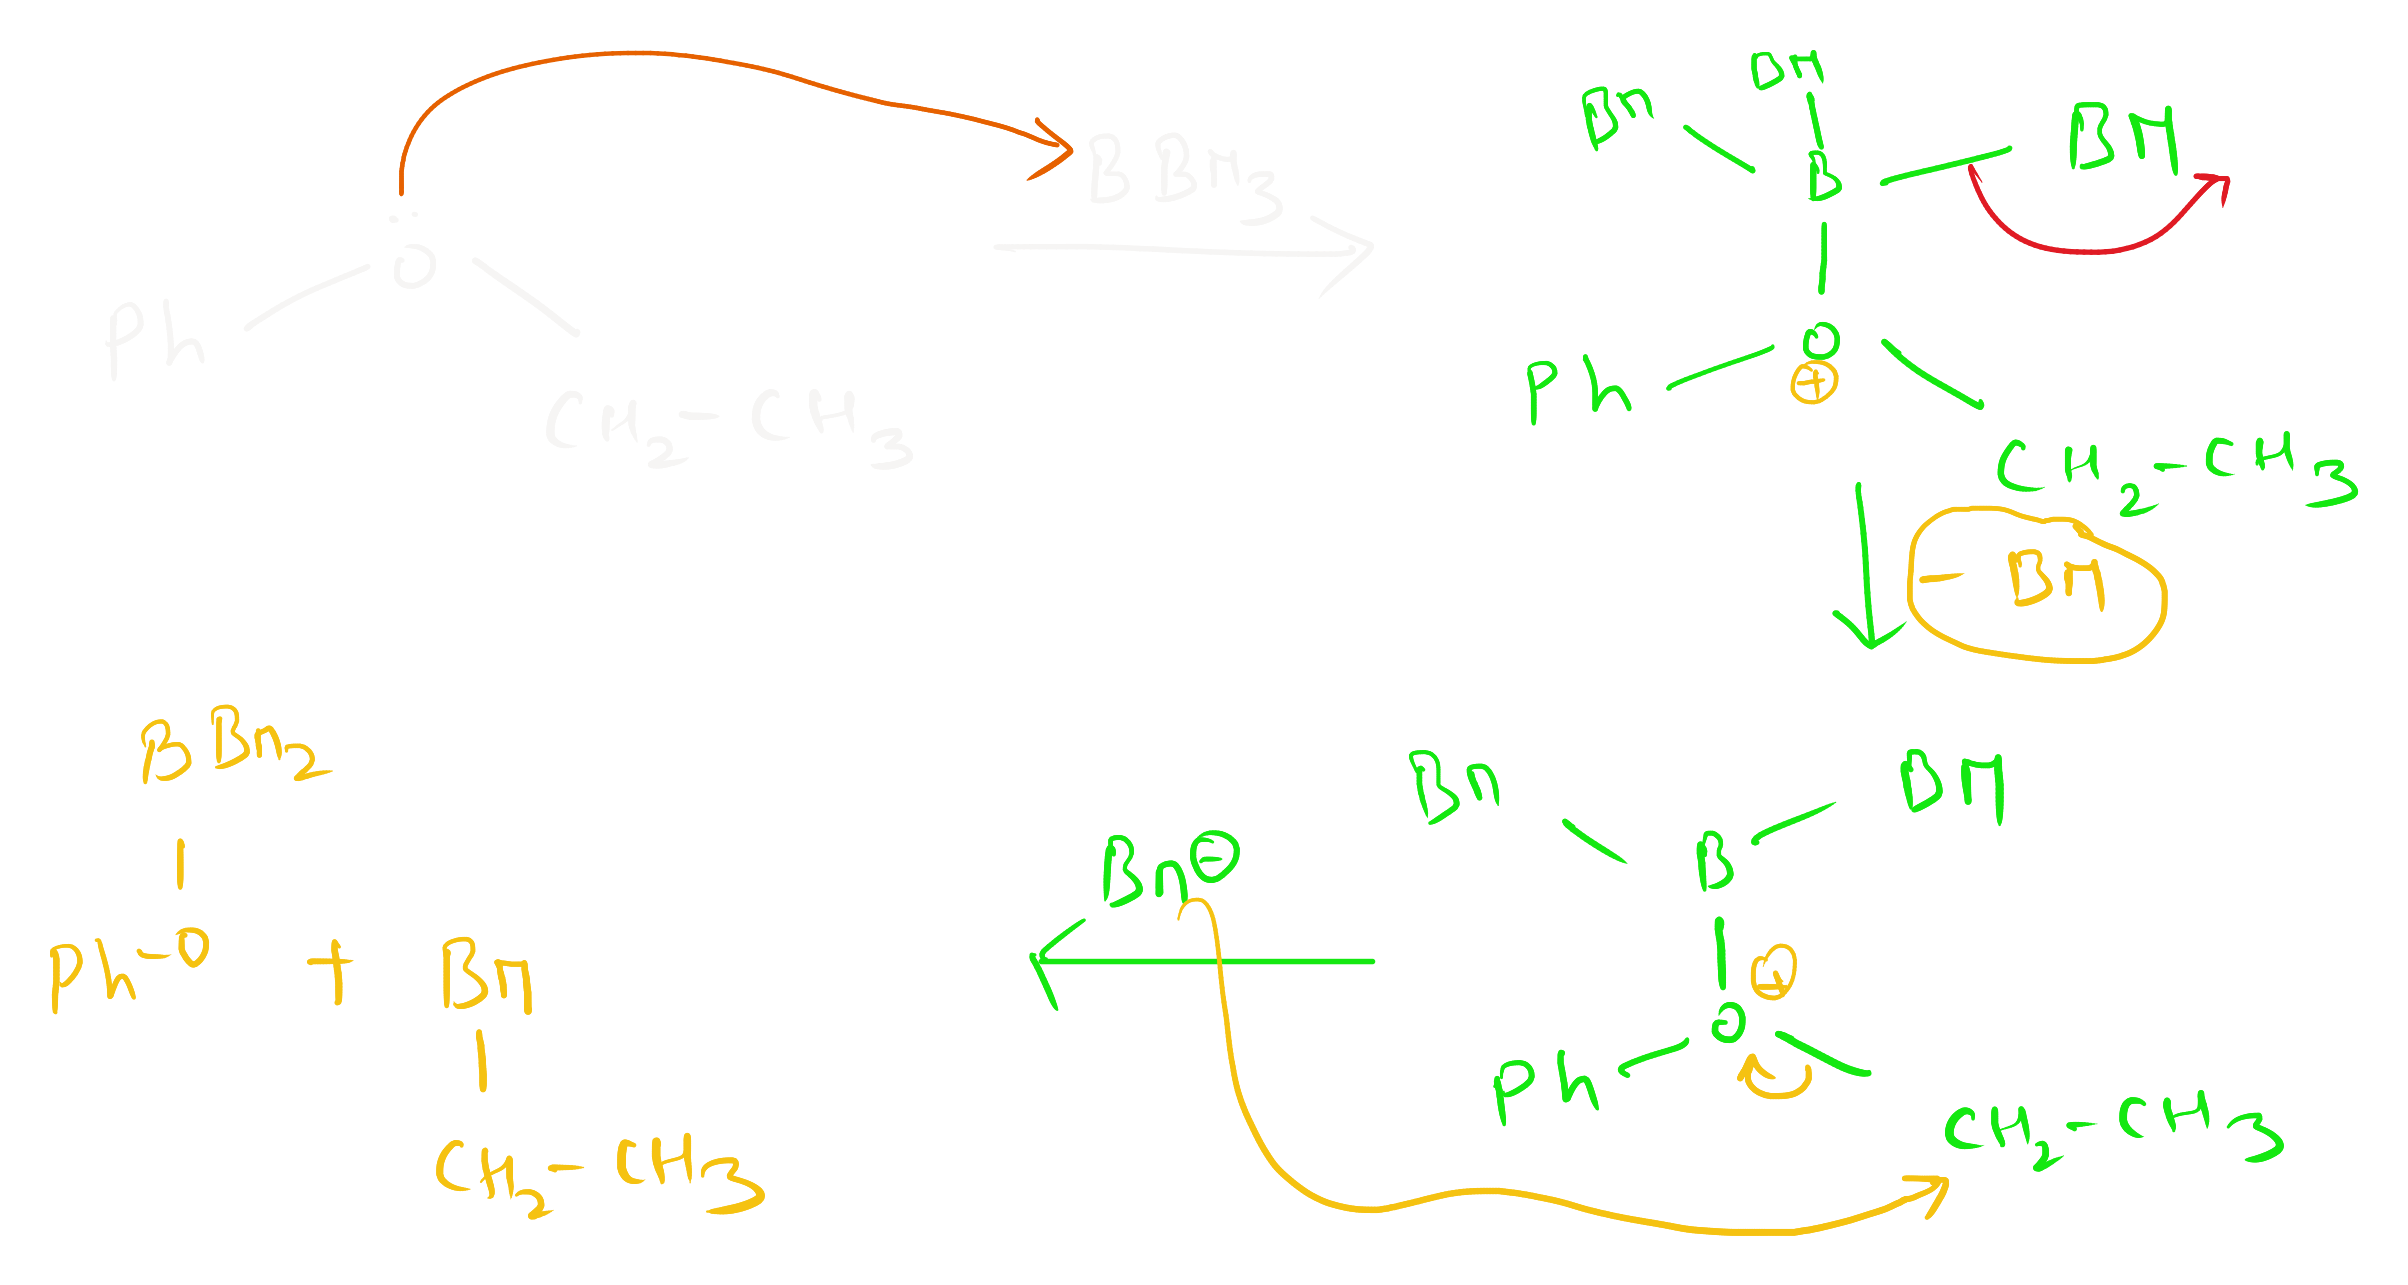 BBr3
Ph O CH2-CH3
Br Br Br
B
Ph O ⊕ CH2-CH3
- Br
BBr2
Ph-O + Br
CH2-CH3
Br⊖
Br Br
B
⊕
Ph O CH2-CH3